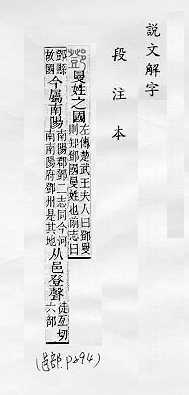 說文解字
段注本
曼姓之國
左傳楚武王夫人曰鄧曼
則知鄧國曼姓也前志曰
鄧縣
故國
今屬南陽
南陽郡鄧二志同今河
南南陽府鄧州是其地
从邑登聲
徒亙切
六部
(邑部. P294)